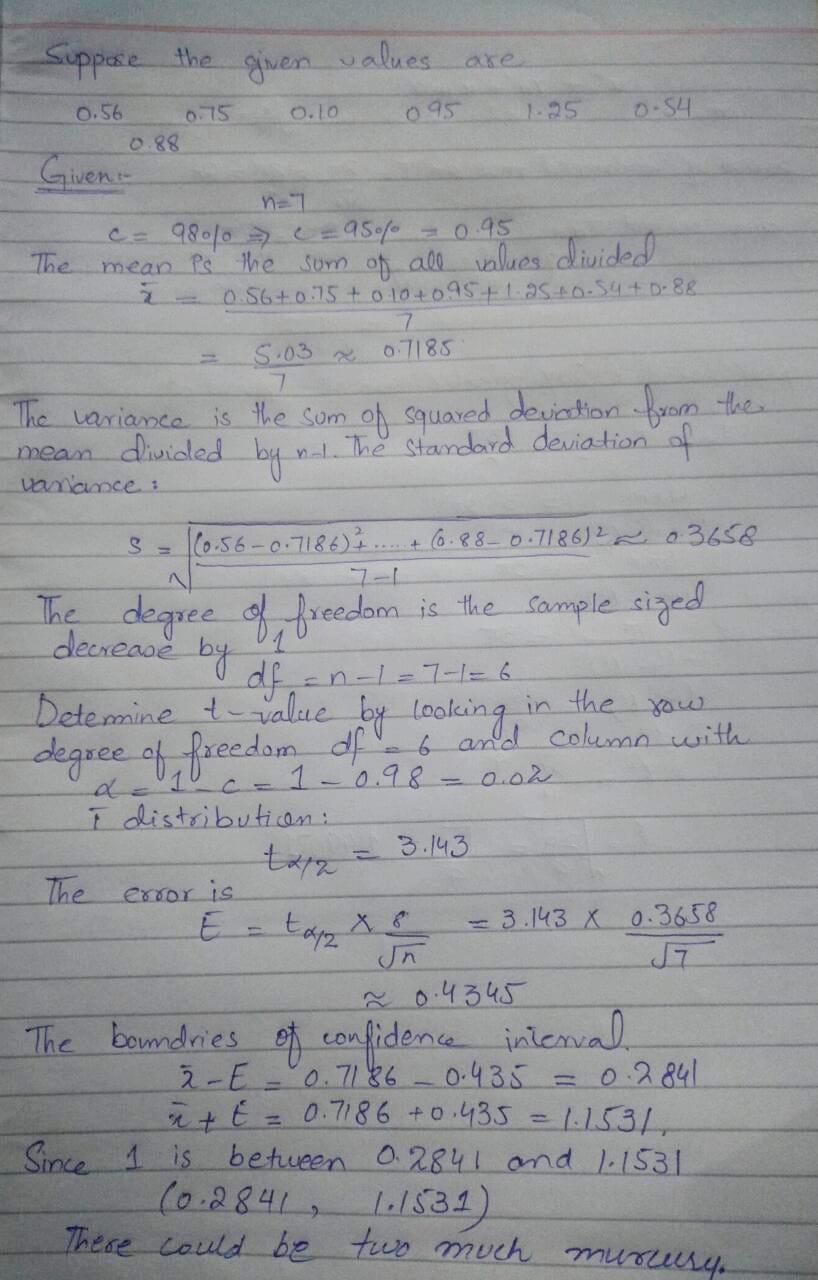 Suppose the given values are
0.56 0.75 0.10 0.95 1.25 0.54
0.88
Given:-
n=7
c = 98% ⇒ c = 95% = 0.95
The mean is the sum of all values divided
x̄ = 0.56+0.75+0.10+0.95+1.25+0.54+0.88
7
= 5.03 ≈ 0.7185
7
The variance is the sum of squared deviation from the
mean divided by n-1. The standard deviation of
variance :
S = √(0.56-0.7186)²+.....+(0.88-0.7186)² ≈ 0.3658
7-1
The degree of freedom is the sample sized
decrease by 1
df = n-1 = 7-1 = 6
Determine t-value by looking in the row
degree of freedom df = 6 and column with
α = 1-c = 1-0.98 = 0.02
T distribution:
tα/2 = 3.143
The error is
E = tα/2 × s = 3.143 × 0.3658
√n √7
≈ 0.4345
The boundries of confidence interval.
x̄-E = 0.7186 - 0.435 = 0.2841
x̄+E = 0.7186 + 0.435 = 1.1531,
Since 1 is between 0.2841 and 1.1531
(0.2841, 1.1531)
There could be two much murcury.